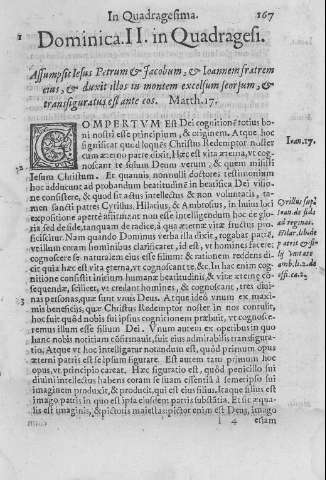 In Quadragesima. 167
1 Dominica.II. in Quadragesi.
Assumpsit Iesus Petrum & Jacobum, & Ioannem fratrem
eius, & duxit illos in montem excelsum seorsum, &
transfiguratus est ante eos. Matth.17.
COMPERTUM EST Dei cognitionẽ totius bo
ni nostri esse principium, & originem. Atque hoc
significat quòd loquẽs Christus Redemptor noster Ioan.17.
cum æterno patre dixit, Hæc est vita æterna, vt cog-
noscant te solum Deum verum, & quem misisti
Iesum Christum. Et quanuis nonnulli doctores testimonium
hoc adducant ad probandum beatitudinẽ in beatifica Dei visio
ne consistere, & quòd sit actus intellectus & non voluntatis, ta-
men sancti patres Cyrillus, Hilarius, & Ambrosius, in huius loci
expositione apertè affirmant non esse intelligendum hoc de glo-
ria sed de fide, tanquam de radice, à qua æternæ vitæ fructus pro-
ficiscitur. Nam quando Dominus verba illa dixit, rogabat patrẽ,
vt illum coram hominibus clarificaret, id est, vt homines facere
cognoscere se naturalem eius esse filium: & rationem reddens di-
cit quia hæc est vita æterna, vt cognoscant te &c. In hac enim cog-
nitione consistit initium humanæ beatitudinis, & vitæ æternæ cõ-
sequendæ, scilicet, vt credant homines, & cognoscant, tres divi-
3 nas personas, quæ sunt vnus Deus. Atque ideò vnum ex maxi-
mis beneficiis, quæ Christus Redemptor noster in nos contulit,
hoc fuit quòd nobis sui ipsius cognitionem præbuit, vt cognosce-
remus illum esse filium Dei. Vnum autem ex operibus in quo
hanc nobis notitiam cõfirmauit, fuit eius admirabilis transfigu-
ratio. Atque vt hoc intelligatur notandum est, quòd primum opus
æterni patris est se ipsum figurare. Est autem tam primum hoc
opus, vt principio careat. Hæc figuratio est, quòd penicillo sui
diuini intellectus habens coram se suam essentiã à semetipso sui
imaginem produxit, & producit, qui est eius filius. Itaque filius est
imago patris in quo est ipsa eiusdem patris substãtia. Et sic æqua-
lis est imaginis, & pictoris maiestas: pictor enim est Deus, imago
l 4 etiam